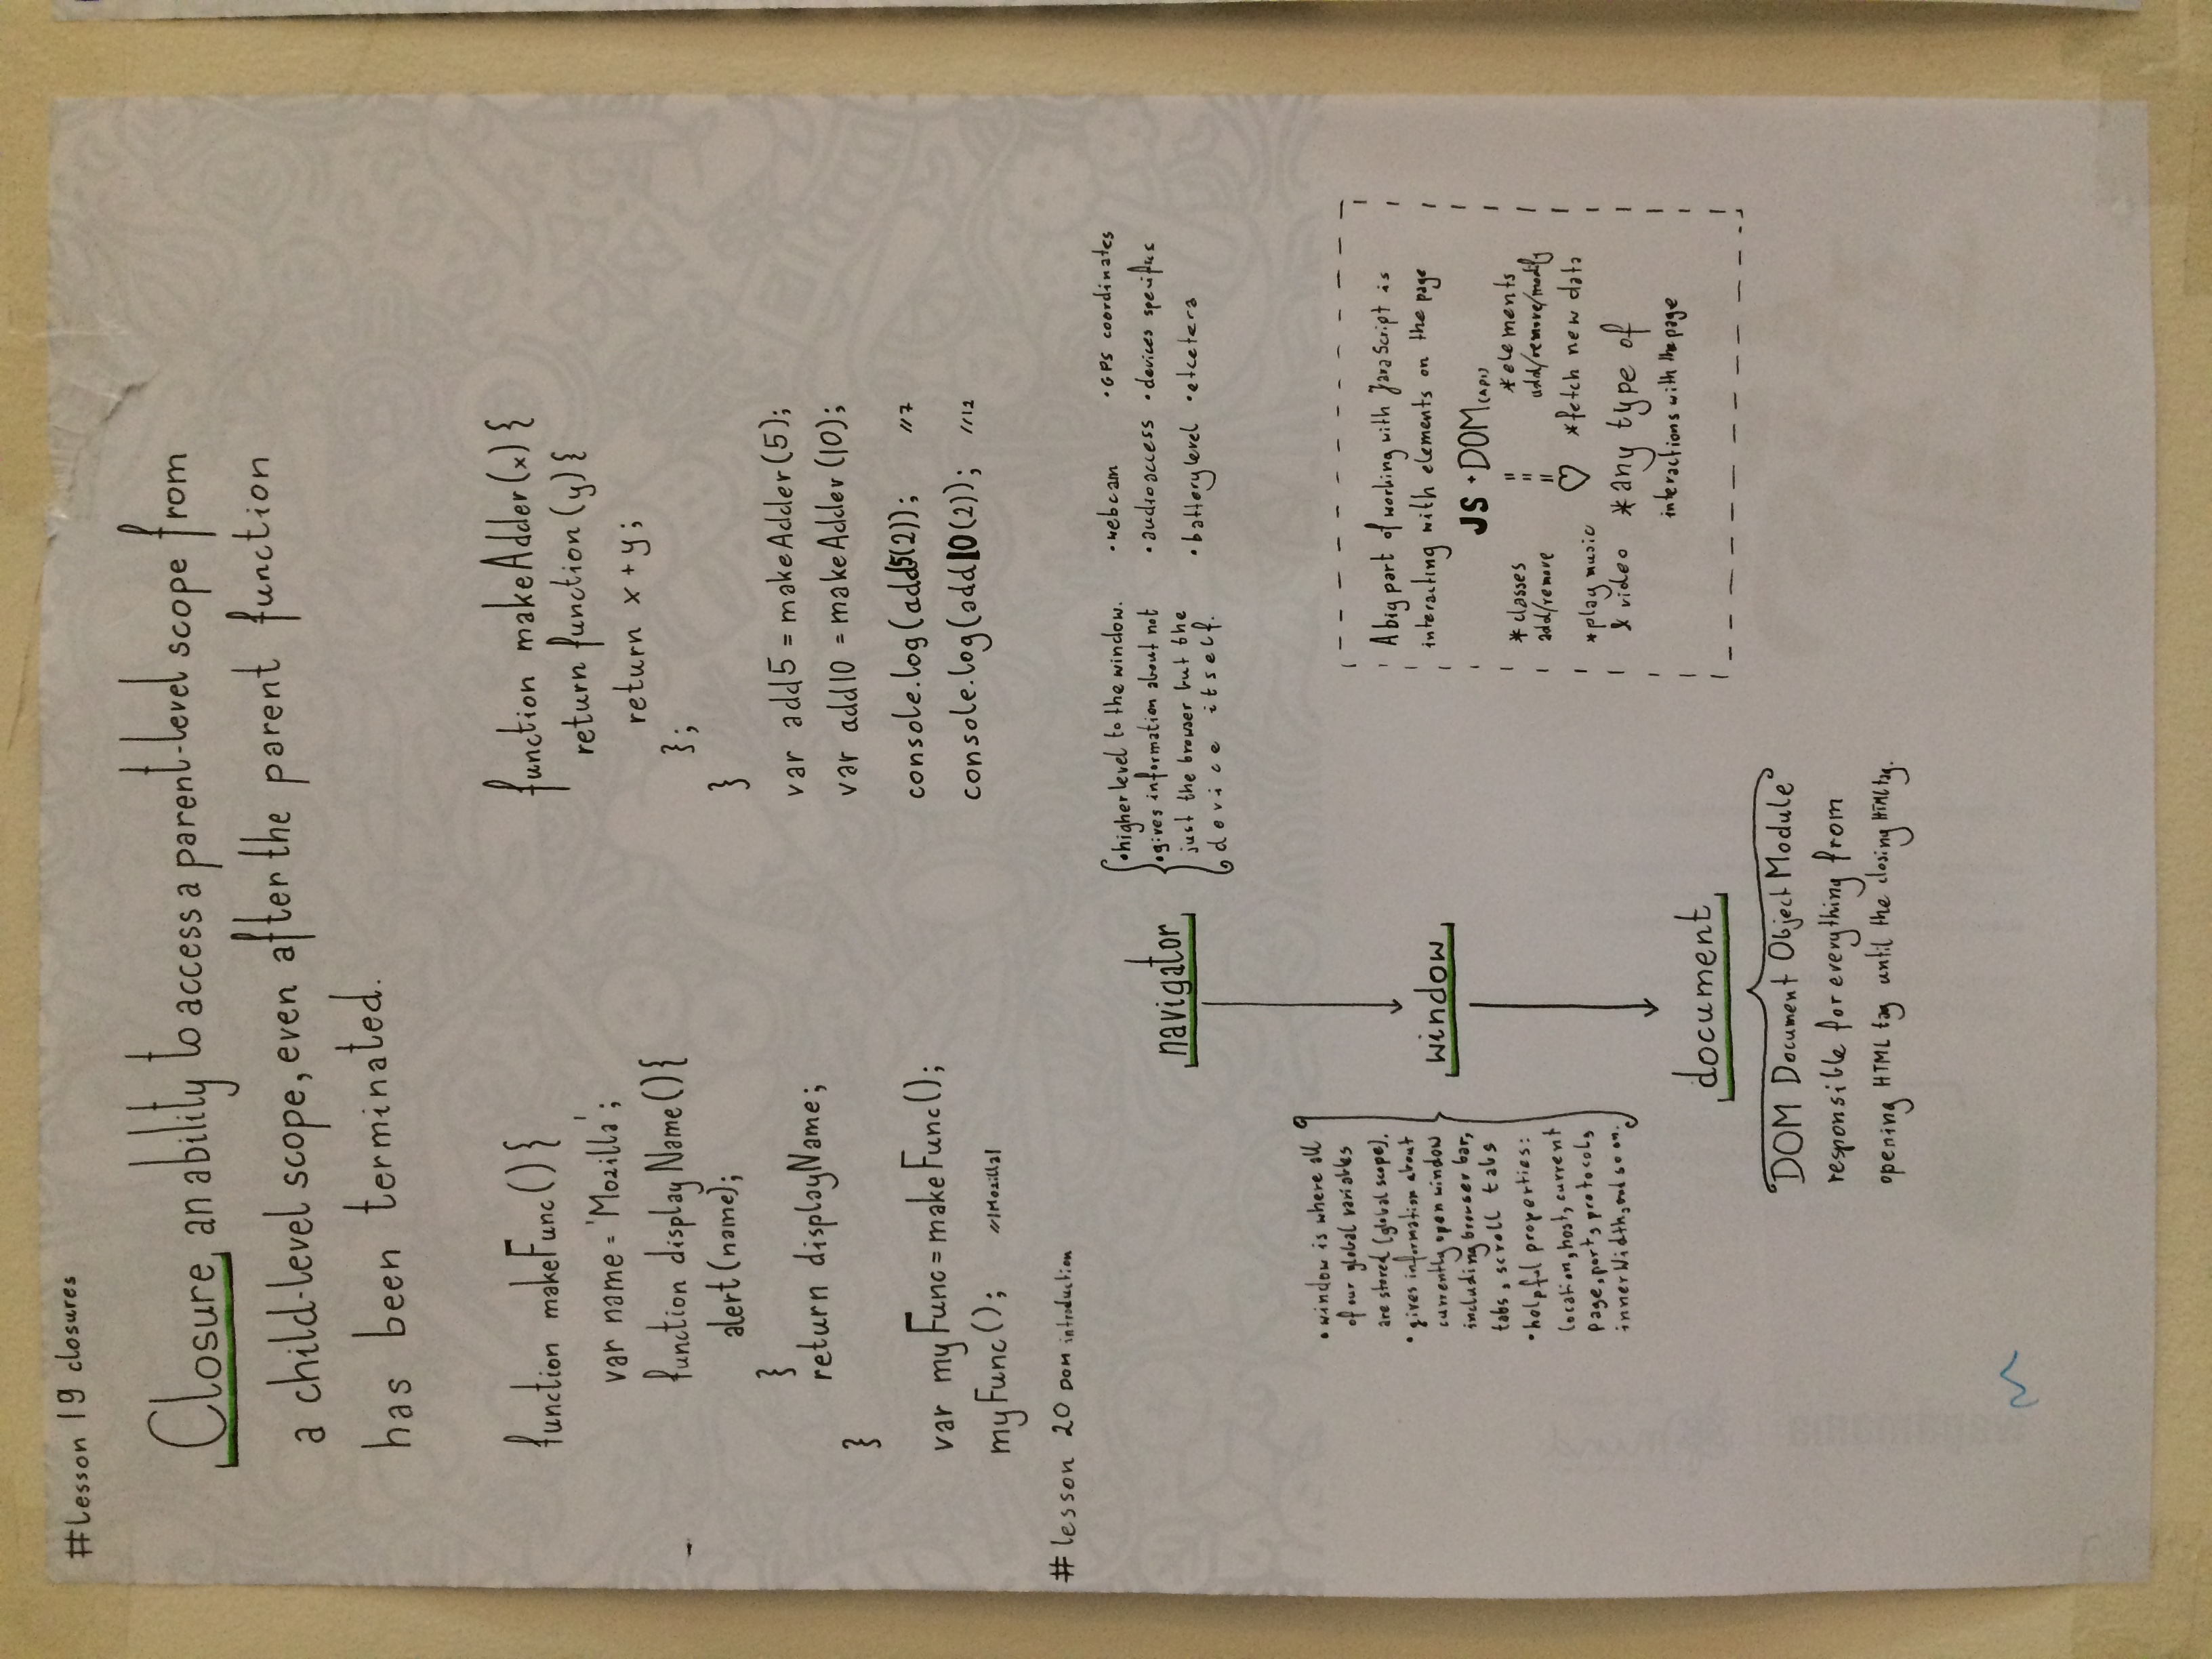 #lesson 19 closures
Closure, an ability to access a parent-level scope from
a child-level scope, even after the parent function
has been terminated.
function makeFunc() {
var name = 'Mozilla';
function displayName(){
alert(name);
}
return displayName;
}
var myFunc = makeFunc();
myFunc(); //|Mozilla|
function makeAdder(x) {
return function (y) {
return x + y;
};
}
var add5 = makeAdder(5);
var add10 = makeAdder(10);
console.log(add5(2)); //7
console.log(add10(2)); //12
# lesson 20 DOM introduction
navigator
•higher level to the window.
•gives information about not
just the browser but the
device itself.
•webcam
•audioaccess
•batterylevel
•GPS coordinates
•devices specifics
•etcetera
•window is where all
of our global variables
are stored (global scope).
•gives information about
currently open window
including browser bar,
tabs, scroll tabs
•helpful properties:
location, host, current
page, port, protocol,
innerWidth, and so on.
window
document
DOM Document Object Module
responsible for everything from
opening HTML tag until the closing HTML tag.
A big part of working with JavaScript is
interacting with elements on the page
JS + DOM (API)
*classes
add/remove
*play music
& video
*elements
add/remove/modify
*fetch new data
*any type of
interactions with the page